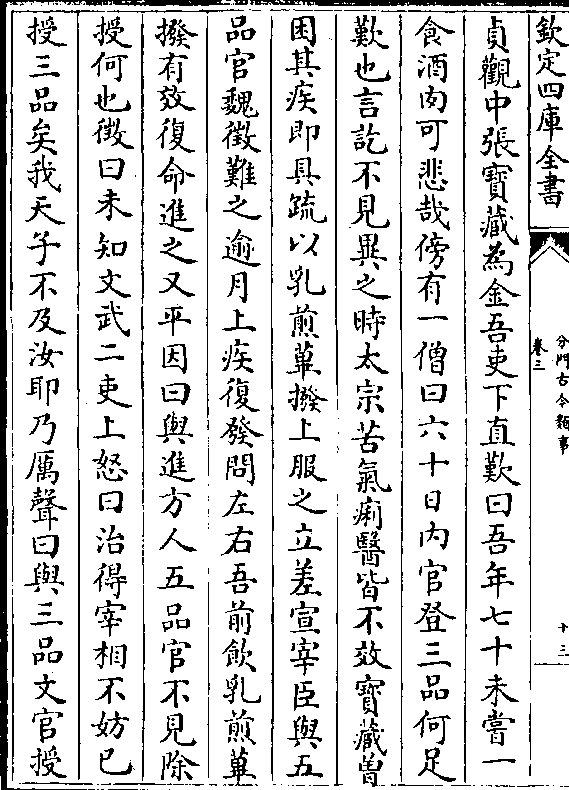 欽定四庫全書
分門古今類事
卷三
十三
貞觀中張寶藏為金吾吏下直歎曰吾年七十未嘗一
食酒肉可悲哉傍有一僧曰六十日內官登三品何足
歎也言訖不見異之時太宗苦氣痢醫皆不效寶藏曽
困其疾即具疏以乳煎蓽撥上服之立差宣宰臣與五
品官魏徵難之逾月上疾復發問左右吾前飲乳煎蓽
撥有效復命進之又平因曰與進方人五品官不見除
授何也徵曰未知文武二吏上怒曰治得宰相不妨已
授三品矣我天子不及汝耶乃厲聲曰與三品文官授